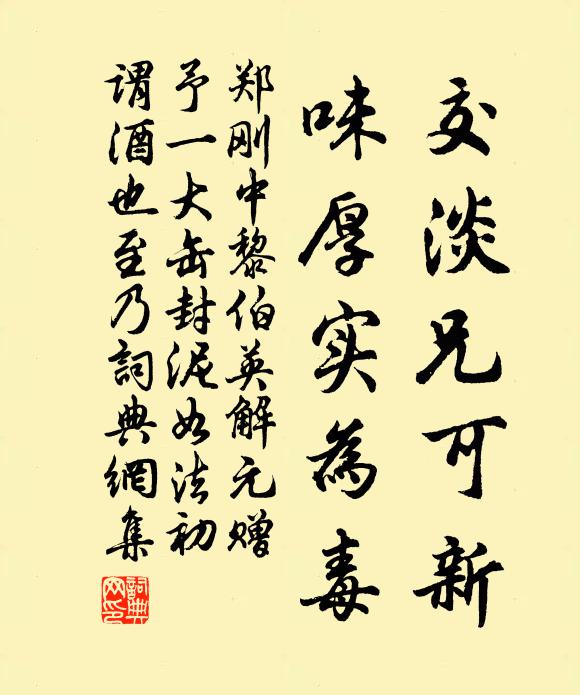 交淡兄可新
味厚实為毒
郑刚中黎伯英解元赠
予一大缶封泥如法初
谓酒也至乃詞典網集
詞典網印